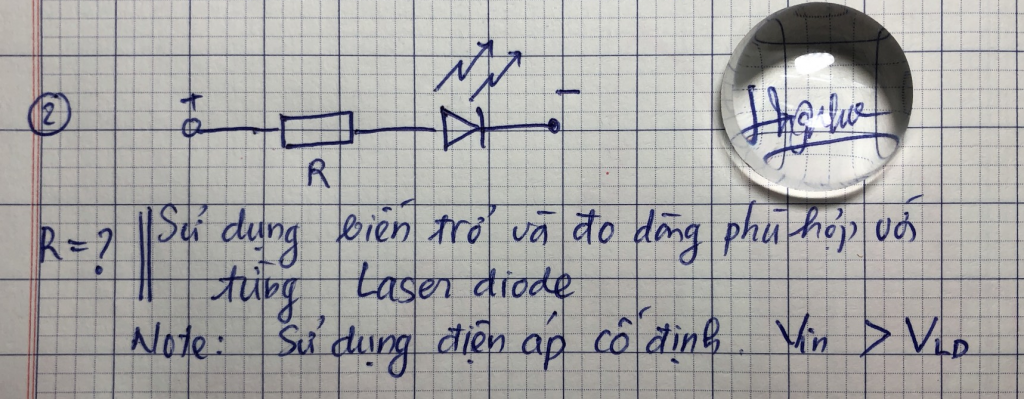 ②
+
−
R
R = ? Sử dụng biến trở và đo dòng phù hợp với
từng Laser diode
Note: Sử dụng điện áp cố định. Vin > VLD